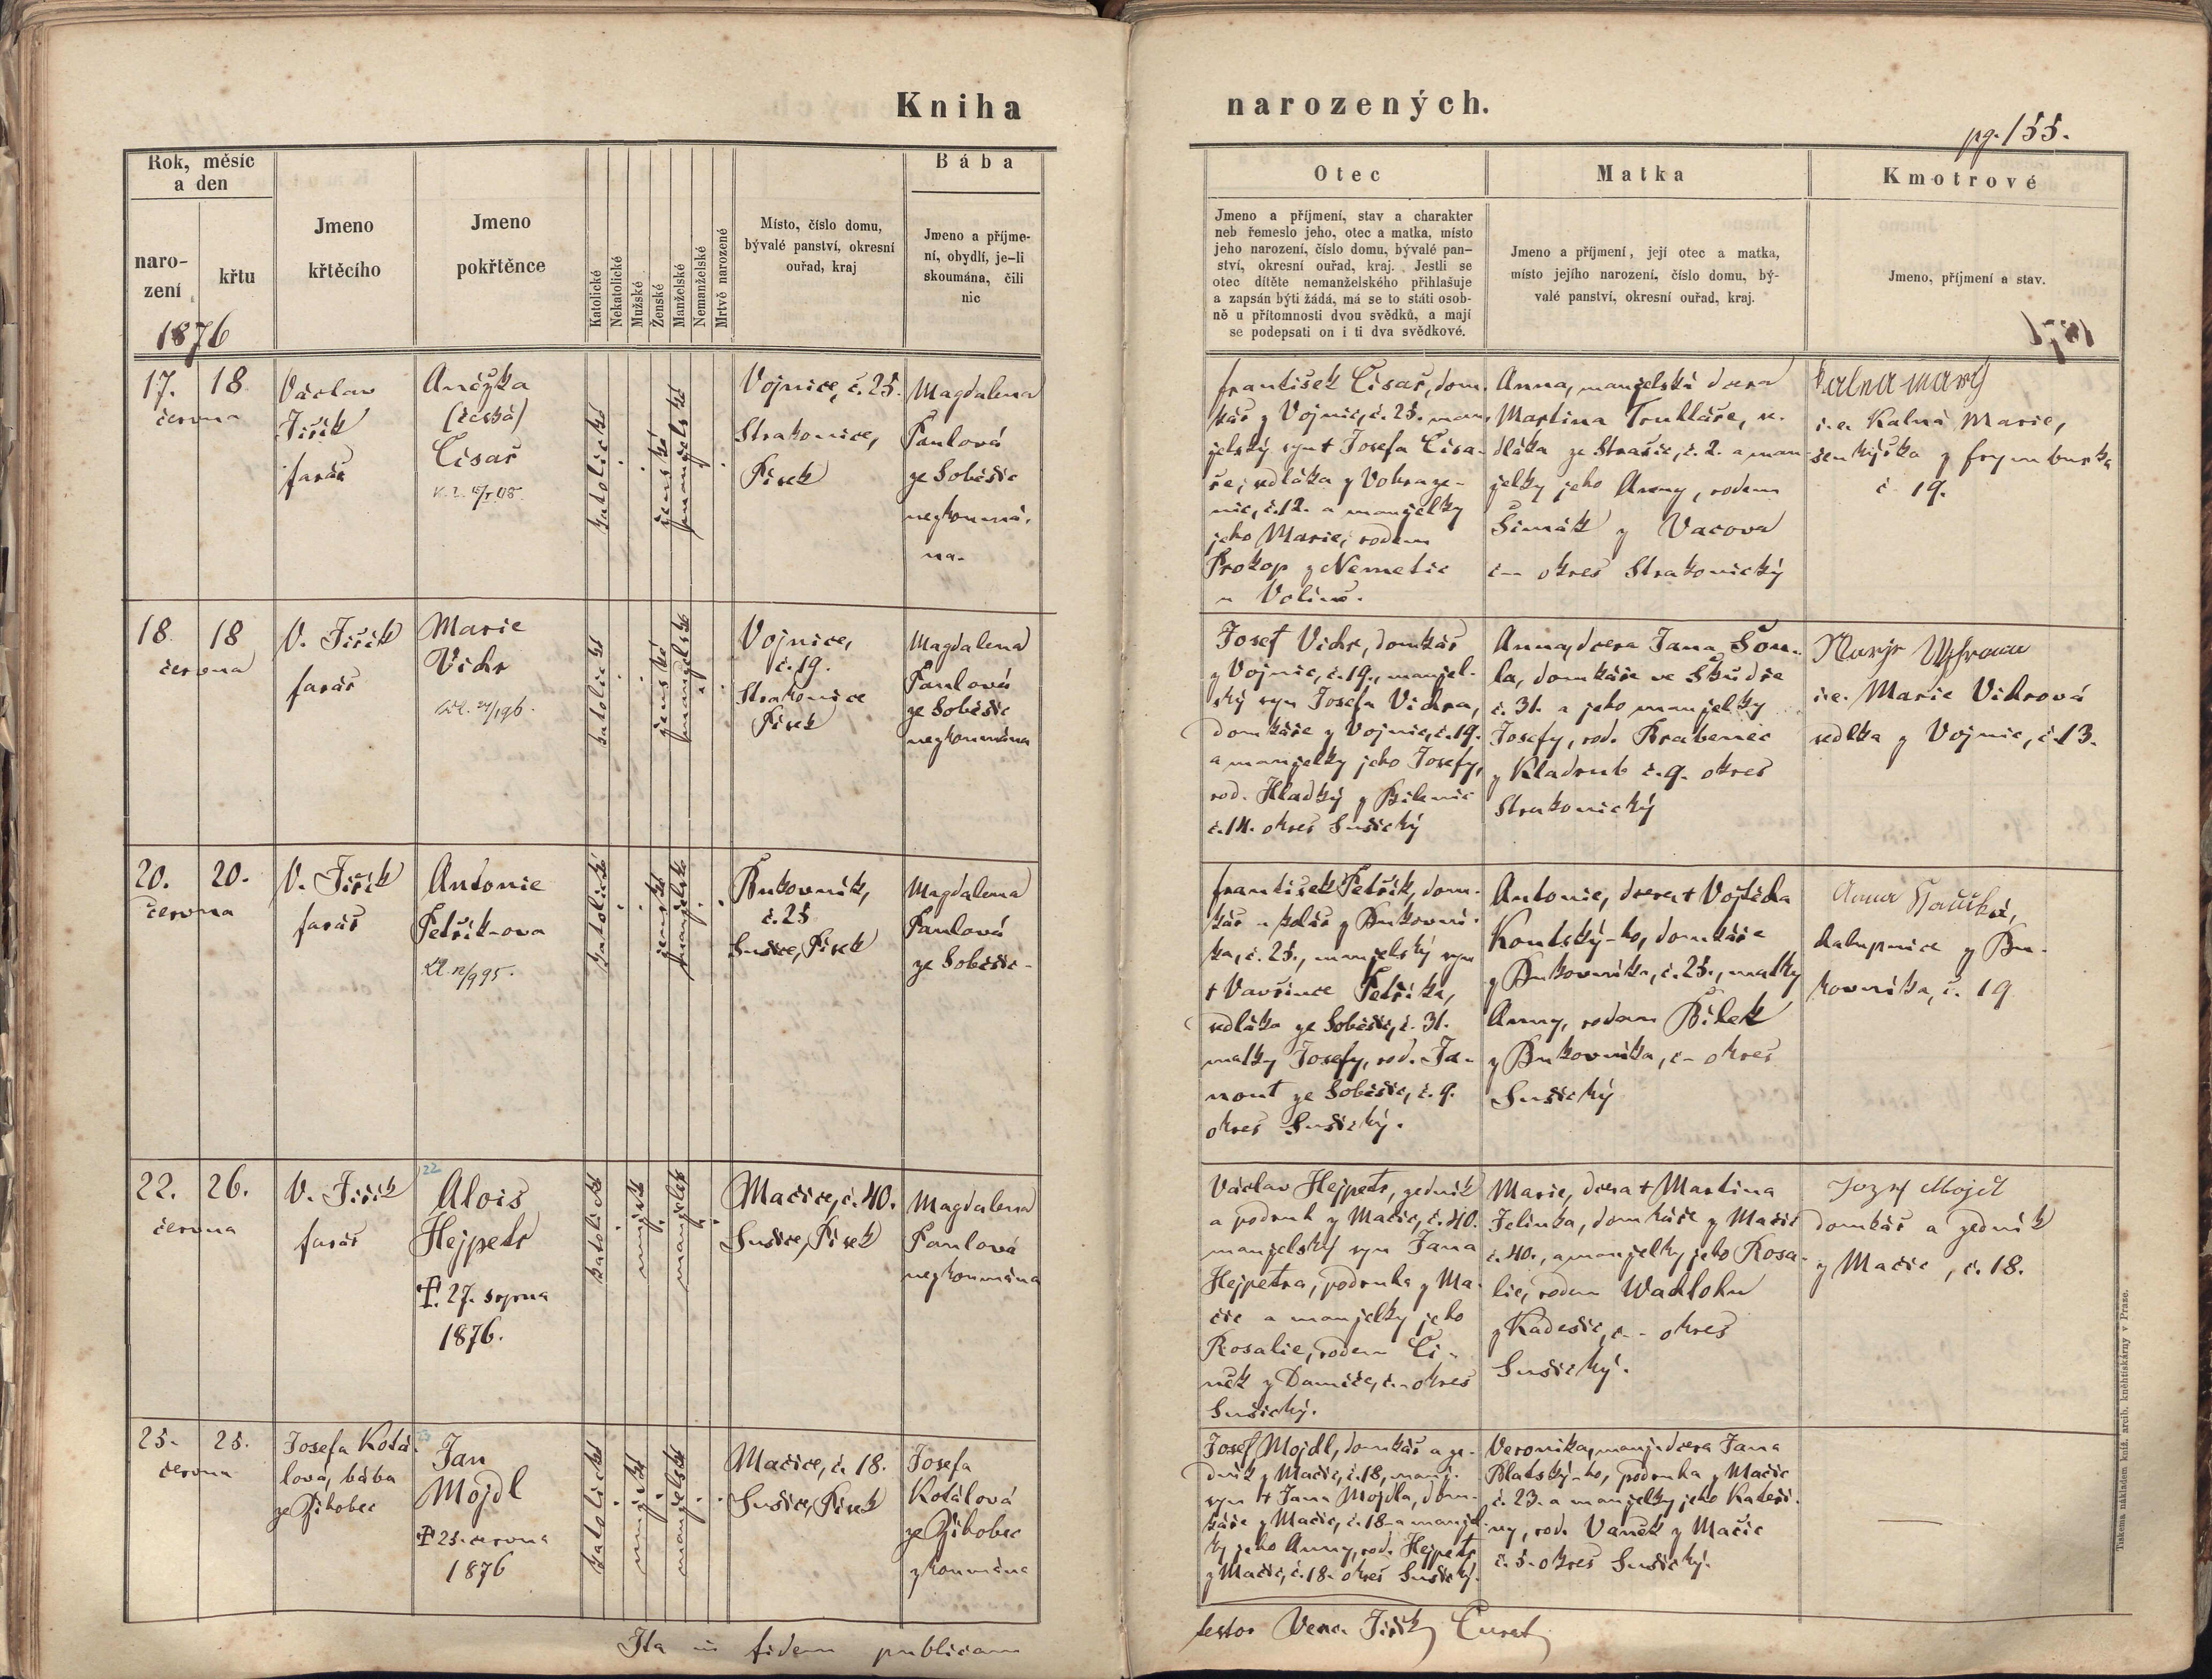 Kniha
narozených.
pg. 155.
Rok, měsíc
a den
naro-
zení
křtu
1876
Jmeno
křtěcího
Jmeno
pokřtěnce
Katolické
Nekatolické
Mužské
Ženské
Manželské
Nemanželské
Mrtvě narozené
Místo, číslo domu,
bývalé panství, okresní
ouřad, kraj
Bába
Jmeno a příjme-
ní, obydlí, je-li
skoumána, čili
nic
Otec
Jmeno a příjmení, stav a charakter
neb řemeslo jeho, otec a matka, místo
jeho narození, číslo domu, bývalé pan-
ství, okresní ouřad, kraj. Jestli se
otec dítěte nemanželského přihlašuje
a zapsán býti žádá, má se to státi osob-
ně u přítomnosti dvou svědků, a mají
se podepsati on i ti dva svědkové.
Matka
Jmeno a příjmení, její otec a matka,
místo jejího narození, číslo domu, bý-
valé panství, okresní ouřad, kraj.
Kmotrové
Jmeno, příjmení a stav.
17. 18
června
Václav
Jiřík
farář
Ančžka
(česká)
Cisař
katolické
ženské
manželské
Vojnice, č. 25.
Strakonice,
Písek
Magdalena
Paulová
ze Soběšic
nezkoumá-
na.
František Cisař, dom-
kář z Vojnic, č. 25. man-
želský syn † Josefa Cisa-
ře, sedláka z Vohraze-
nic, č. 12. a manželky
jeho Marie, rodem
Prokop z Nemetic
u Volině.
Anna, manželská dcera
Martina Truhláře, se-
dláka ze Strašic, č. 2. a man-
želky jeho Anny, rodem
Šimák z Vacova
č – okres Strakonický
Kalna mary
i.e. Kalná Marie,
šenkýřka z Frymburka
č 19.
18. 18
června
V. Jiřík
farář
Marie
Vichr
katolické
ženské
manželské
Vojnice,
č. 19.
Strakonice
Písek
Magdalena
Paulová
ze Soběšic
nezkoumána
Josef Vichr, domkář
z Vojnic, č. 19., manžel-
ský syn Josefa Vichra,
domkáře z Vojnic, č. 19.
a manželky jeho Josefy,
rod. Hladký z Bilenic
č. 14. okres Sušický
Anna, dcera Jana Sou-
la, domkáře ve
č. 31. a jeho manželky
Josefy, rod. Brabenec
z Kladrub č. 9. okres
Strakonický
i.e. Marie Vichrová
sedlka z Vojnic, č. 13.
20. 20.
června
V. Jiřík
farář
Antonie
Petřík-ova
katolické
ženské
manželské
Bukovník,
č. 25
Sušice, Písek
Magdalena
Paulová
ze Soběšic-
František Petřík, dom-
kář a kolář z Bukovní-
ka, č. 25., manželský syn
† Vavřince Petříka,
sedláka ze Soběšic, č. 31.
matky Josefy, rod. Ja-
nout ze Soběšic, č. 9.
okres Sušický.
Antonie, dcera † Vojtěcha
Koutský-ho, domkáře
z Bukovníka, č. 25., matky
Anny, rodem Bílek
z Bukovníka, č – okres
Sušický
Anna
chalupnice z Bu-
kovníka, č. 19
22. 26.
června
V. Jiřík
farář
22
Alois
Hejpetr
†. 27. srpna
1876.
katolické
mužské
manželské
Mačice, č. 40.
Sušice, Písek
Magdalena
Paulová
nezkoumána
Václav Hejpetr, zedník
a podruh z Mačic, č. 40.
manželský syn Jana
Hejpetra, podruha z Ma-
čic a manželky jeho
Rosalie, rodem Či-
něk z Damíče, č – okres
Sušický.
Marie, dcera † Martina
Jelínka, domkáře z Mačic
č. 40., a manželky jeho Rosa-
lie, rodem Wachlohu
z Kadešic, č – okres
Sušický.
Jozef Mojdl
domkář a zedník
z Mačic, č. 18.
25. 25.
června
Josefa Kotá-
lová, bába
ze Žihobec
Jan
Mojdl
† 25. června
1876
katolické
mužské
manželské
Mačice, č. 18.
Sušice, Písek
Josefa
Kotálová
ze Žihobec
zkoumána
Josef Mojdl, domkář a ze-
dník z Mačic, č. 18, manž.
syn † Jana Mojdla, dom-
káře z Mačic, č. 18 a manžel-
ky jeho Anny, rod. Hejpetr
z Mačic, č. 18. okres Sušický.
Veronika, manž. dcera Jana
Blatský-ho, podruha z Mačic
č. 23. a manželky jeho Kateři-
ny, rod. Vaněk z Mačic
č. 5. okres Sušický.
Ita in fidem publicam
testor Venc. Jiřík, Curat
Tiskem a nákladem kníž. arcib. knihtiskárny v Praze.